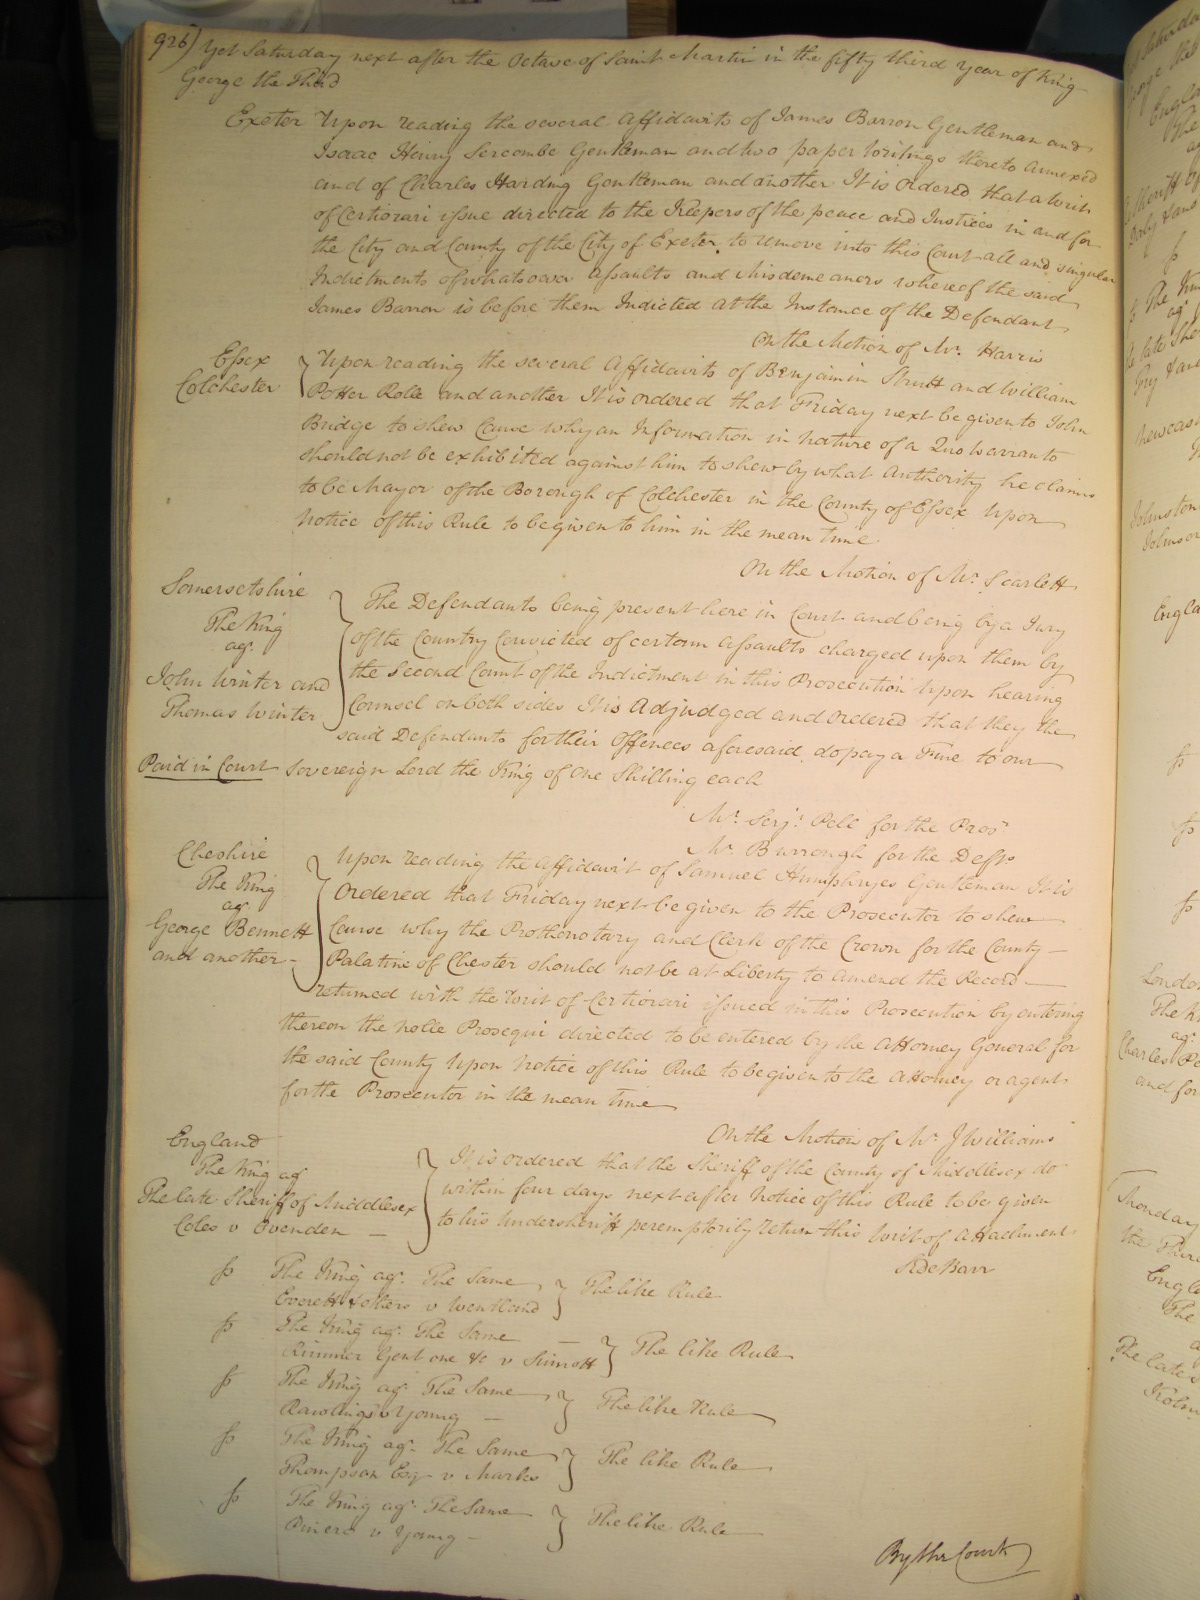 926) Yet Saturday next after the Octave of Saint Martin in the fifty third Year of King
George the Third
Exeter Upon reading the several Affidavits of James Barron Gentleman and
Isaac Henry Sercombe Gentleman and two paper Writings thereto annexed
and of Charles Harding Gentleman and another It is Ordered that a Writ
of Certiorari issue directed to the Keepers of the peace and Justices in and for
the City and County of the City of Exeter to remove into this Court all and singular
Indictments of whatsoever Assaults and Misdemeanors whereof the said
James Barron is before them Indicted At the Instance of the Defendant
On the Motion of Mr. Harris
Essex
Colchester
Upon reading the several Affidavits of Benjamin Strutt and William
Potter Rolle and another It is ordered that Friday next be given to John
Bridge to shew Cause why an Information in nature of a Quo Warranto
should not be exhibited against him to shew by what Authority he claims
to be Mayor of the Borough of Colchester in the County of Essex Upon
Notice of this Rule to be given to him in the mean time
On the Motion of Mr. Scarlett
Somersetshire
The King
agt.
John Winter and
Thomas Winter
Paid in Court
The Defendants being present here in Court and being by a Jury
of the Country Convicted of certain Assaults charged upon them by
the Second Count of the Indictment in this Prosecution Upon hearing
Counsel on both sides It is Adjudged and Ordered that they the
said Defendants for their Offences aforesaid do pay a Fine to our
Sovereign Lord the King of One Shilling each
Mr. Serjt. Pell for the Prosr.
Mr. Burrough for the Defts.
Cheshire
The King
agt.
George Bennett
and another
Upon reading the Affidavit of Samuel Humphryes Gentleman It is
Ordered that Friday next be given to the Prosecutor to shew
Cause why the Prothonotary and Clerk of the Crown for the County
Palatine of Chester should not be at Liberty to Amend the Record
returned with the Writ of Certiorari issued in this Prosecution by entering
thereon the Nolle Prosequi directed to be entered by the Attorney General for
the said County Upon Notice of this Rule to be given to the Attorney or agent
for the Prosecutor in the mean time
On the Motion of Mr. J Williams
England
The King agt.
The late Sheriff of Middlesex
Coles v Ovenden
It is ordered that the Sheriff of the County of Middlesex do
within four days next after Notice of this Rule to be given
to his Undersheriff peremptorily return this Writ of Attachment
Side Barr
The King agt. The Same
Everett & others v Wentland
The like Rule
The King agt. The Same
Rimmer Gent one &c v Sinnott
The like Rule
The King agt. The Same
Rawlings v Young
The like Rule
The King agt. The Same
Thompson Esqr. v Marks
The like Rule
The King agt. The Same
Pinero v Young
The like Rule
By the Court